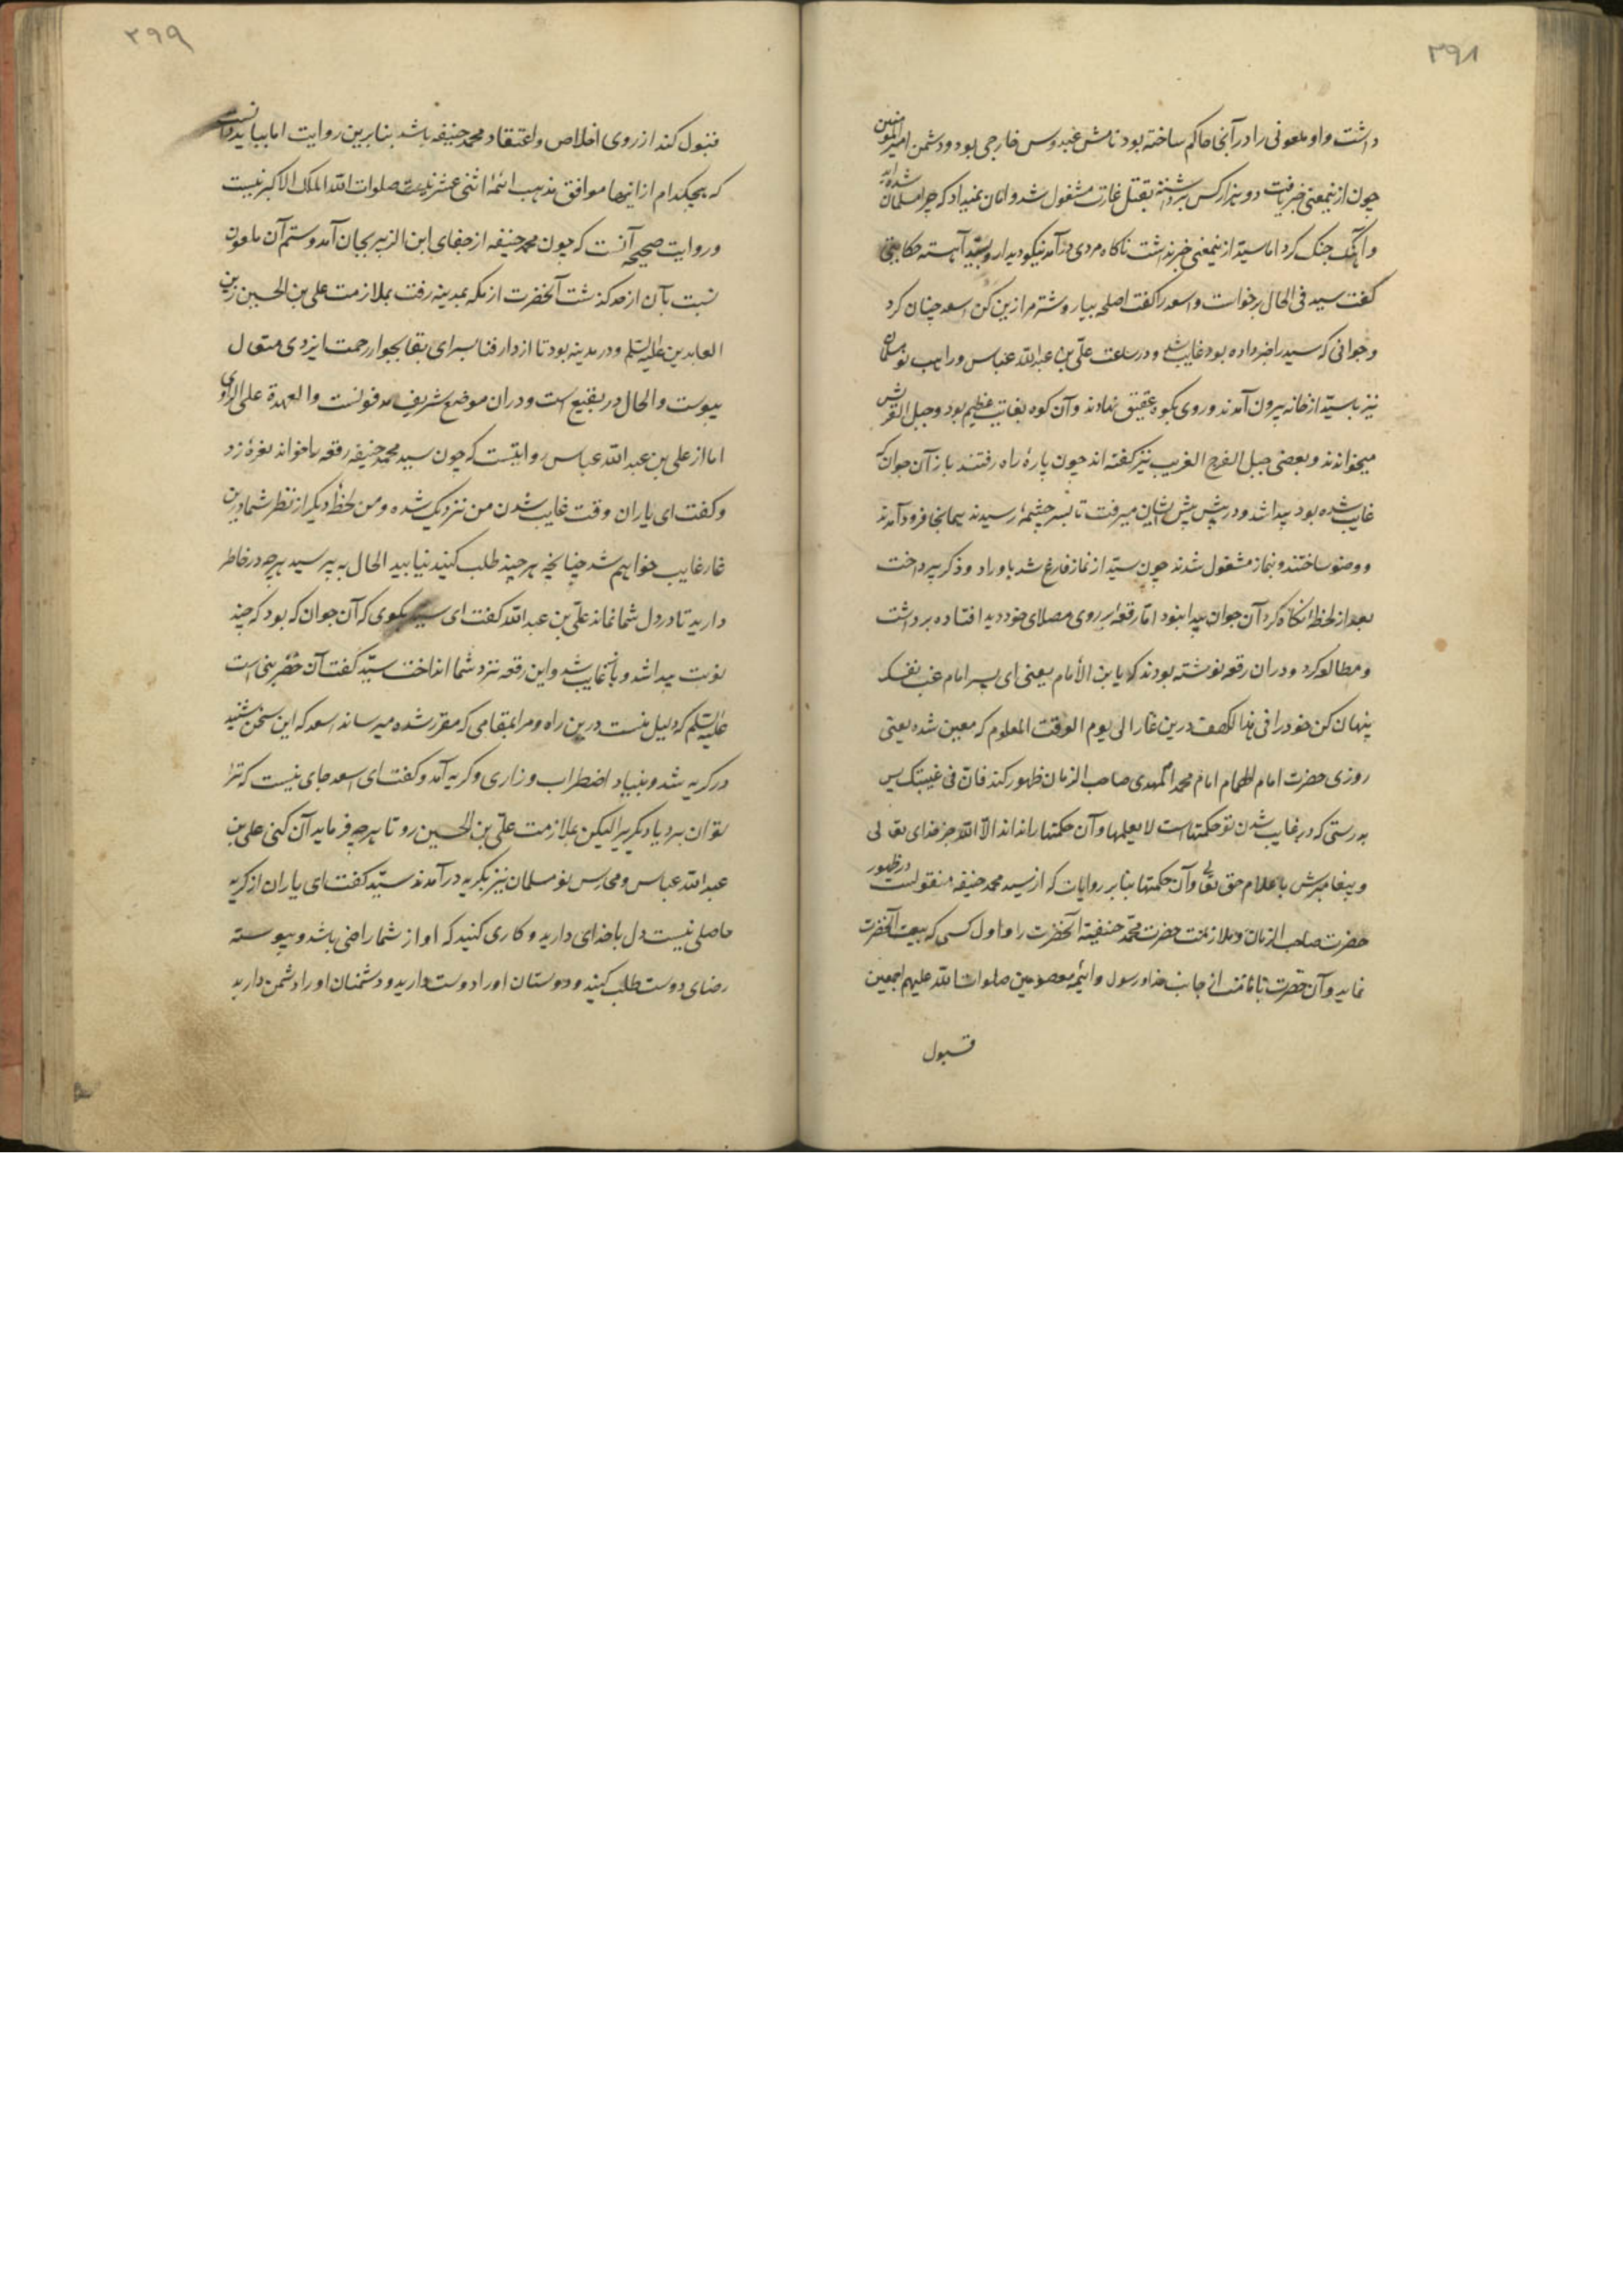 ۳۹۸
داشت و او ملعونی را در آنجا حاکم ساخته بود نامش عبدوس خارجی بود و دشمن امیرالمؤمنین
چون ازینمعنی خبر یافت دو هزار کس برداشته بقتل غارت مشغول شد و امان نمیداد که چرا مسلمان شده‌اید
و آهنگ جنک کرد اما سید ازینمعنی خبر نداشت ناکاه مردی درآمد نیکو دیدار و بسید آهسته حکایتی
کفت سید فی الحال برخواست و اسعد را کفت اصلحه بیار و شتر مرا زین کن اسعد چنان کرد
و جوانی که سید را خبر داده بود غایب شد و در ساعت علی بن عبدالله عباس و راهب نو مسلمان
نیز با سید از خانه بیرون آمدند و روی بکوه عقیق نهادند و آن کوه بغایت عظیم بود و جبل القرش
میخواندند و بعضی جبل الفرج الغریب نیز کفته‌اند چون پارهٔ راه رفتند باز آن جوان که
غایب شده بود پیدا شد و در پیش پیش ایشان میرفت تا بسر چشمهٔ رسیدند همانجا فرود آمدند
و وضو ساختند و بنماز مشغول شدند چون سید از نماز فارغ شد باوراد و ذکر پرداخت
بعد از لحظهٔ نکاه کرد آن جوان پیدا نبود اما رقعهٔ بر روی مصلای خود دید افتاده برداشت
و مطالعه کرد و دران رقعه نوشته بودند که یا بن الأمام یعنی ای پسر امام غب نفسک
پنهان کن خود را فی هذا الکهف درین غار الی یوم الوقت المعلوم که معین شده یعنی
روزی حضرت امام الهمام امام محمد المهدی صاحب الزمان ظهور کند فان فی غیبتک پس
بدرستی که در غایب شدن تو حکمتهاست لا یعلمها و آن حکمتها را نداند الا الله جز خدای تعالی
و پیغامبرش باعلام حق تعالی و آن حکمتها بنابر روایات که از سید محمد حنیفه منقولست در ظهور
حضرت صاحب الزمان و ملازمت حضرت محمد حنیفه آنحضرت را و اول کسی که بیعت آنحضرت
نماید و آن حضرت تا از جانب خدا و رسول و ائمه معصومین صلوات الله علیهم اجمعین
قبول
۳۹۹
قبول کند از روی اخلاص و اعتقاد محمد حنیفه باشد بنابرین روایت اما بباید دانست
که هیچکدام ازاینها موافق مذهب ائمهٔ اثنی عشر علیهم صلوات الله الملک الاکبر نیست
و روایت صحیحه آنست که چون محمد حنیفه از جفای ابن الزبیر بجان آمد و ستم آن ملعون
نسبت بآن از حد کذشت آنحضرت از مکه بمدینه رفت بملازمت علی بن الحسین زین
العابدین علیه السلم و در مدینه بود تا از دار فنا بسرای بقا بجوار رحمت ایزدی متعال
پیوست و الحال در بقیع است و دران موضع شریف مدفونست و العهدة علی الراوی
اما از علی بن عبدالله عباس روایتست که چون سید محمد حنیفه رقعه را خواند نعرهٔ زد
و کفت ای یاران وقت غایب شدن من نزدیک شده و من لحظهٔ دیکر از نظر شما درین
غار غایب خواهم شد چنانچه هر چند طلب کنید نیابید الحال بپرسید هر چه در خاطر
دارید تا در دل شما نماند علی بن عبدالله کفت ای سید بکوی که آن جوان که بود که چند
نوبت پیدا شد و باز غایب شد و این رقعه نزد شما انداخت سید کفت آن خضر نبی است
علیه السلم که دلیل منست درین راه و مرا بمقامی که مقرر شده میرساند اسعد که این سخن شنید
در کریه شد و بنیاد اضطراب و زاری و کریه آمد و کفت ای اسعد جای نیست که ترا
توان برد یاد کیریر الیکن بملازمت علی بن الحسین رو تا هر چه فرماید آن کنی علی بن
عبدالله عباس و محارس نو مسلمان نیز بکریه درآمدند سید کفت ای یاران از کریه
حاصلی نیست دل با خدای دارید و کاری کنید که او از شما راضی باشد و پیوسته
رضای دوست طلب کنید و دوستان او را دوست دارید و دشمنان او را دشمن دارید